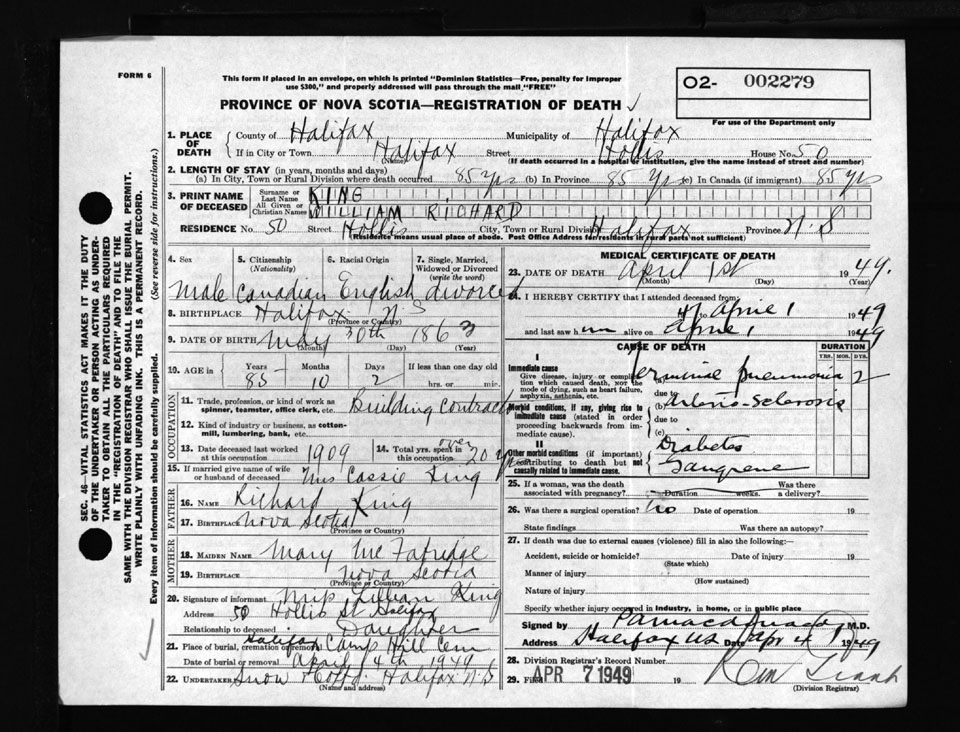 FORM 6
This form if placed in an envelope, on which is printed "Dominion Statistics—Free, penalty for improper
use $300," and properly addressed will pass through the mail "FREE"
O2- 002279
PROVINCE OF NOVA SCOTIA—REGISTRATION OF DEATH
For use of the Department only
1. PLACE OF DEATH
County of Halifax Municipality of Halifax
If in City or Town Halifax Street Hollis House No. 50
(Name)
(If death occurred in a hospital or institution, give the name instead of street and number)
2. LENGTH OF STAY (in years, months and days)
(a) In City, Town or Rural Division where death occurred 85 yrs (b) In Province 85 yrs (c) In Canada (if immigrant) 85 yrs
3. PRINT NAME OF DECEASED
Surname or Last Name KING
All Given or Christian Names WILLIAM RICHARD
RESIDENCE No. 50 Street Hollis City, Town or Rural Division Halifax Province N.S
(Residence means usual place of abode. Post Office Address for residents in rural parts not sufficient)
4. Sex
5. Citizenship (Nationality)
6. Racial Origin
7. Single, Married, Widowed or Divorced (write the word)
male Canadian English divorced
8. BIRTHPLACE Halifax N.S
(Province or Country)
9. DATE OF BIRTH May 30th 1863
(Month) (Day) (Year)
10. AGE in
Years Months Days If less than one day old
85 10 2 hrs. or min.
OCCUPATION
11. Trade, profession or kind of work as
spinner, teamster, office clerk, etc. Building Contractor
12. Kind of industry or business, as cotton-
mill, lumbering, bank, etc.
13. Date deceased last worked at this occupation 1909
14. Total yrs. spent in this occupation over 20 yrs
15. If married give name of wife
or husband of deceased Mrs Cassie King
FATHER
16. NAME Richard King
17. BIRTHPLACE Nova Scotia
(Province or Country)
MOTHER
18. MAIDEN NAME Mary McFatridge
19. BIRTHPLACE Nova Scotia
(Province or Country)
20. Signature of informant Miss Lillian King
Address 50 Hollis St Halifax
Relationship to deceased Daughter
21. Place of burial, cremation or removal Halifax Camp Hill Cem
Date of burial or removal April 4th 1949
22. UNDERTAKER Snow Halifax N.S
(Name and address)
MEDICAL CERTIFICATE OF DEATH
23. DATE OF DEATH April 1st 1949.
(Month) (Day) (Year)
24. I HEREBY CERTIFY that I attended deceased from:
April 1 1949
and last saw him alive on April 1 1949
CAUSE OF DEATH
DURATION
YRS. MOS. DYS.
I
Immediate cause
Give disease, injury or compli-
cation which caused death, NOT the
mode of dying, such as heart failure,
asphyxia, asthenia, etc.
(a) Terminal pneumonia 2
due to
Morbid conditions, if any, giving rise to
immediate cause (stated in order
proceeding backwards from im-
mediate cause).
Arterio-Sclerosis
due to
(c)
II
Other morbid conditions (if important)
contributing to death but not
causally related to immediate cause.
Diabetes
Gangrene
25. If a woman, was the death
associated with pregnancy? Duration weeks. Was there a delivery?
26. Was there a surgical operation? no Date of operation 19
State findings Was there an autopsy?
27. If death was due to external causes (violence) fill in also the following:—
Accident, suicide or homicide? Date of injury 19
(State which)
Manner of injury
(How sustained)
Nature of injury
Specify whether injury occurred in industry, in home, or in public place
Signed by M.D.
Address Halifax NS Date Apr 4 1949
28. Division Registrar's Record Number
29. Filed APR 7 1949 19
(Division Registrar)
SEC. 46—VITAL STATISTICS ACT MAKES IT THE DUTY
OF THE UNDERTAKER OR PERSON ACTING AS UNDER-
TAKER TO OBTAIN ALL THE PARTICULARS REQUIRED
IN THE "REGISTRATION OF DEATH" AND TO FILE THE
SAME WITH THE DIVISION REGISTRAR WHO SHALL ISSUE THE BURIAL PERMIT.
WRITE PLAINLY WITH UNFADING INK. THIS IS A PERMANENT RECORD.
Every item of information should be carefully supplied. (See reverse side for instructions.)